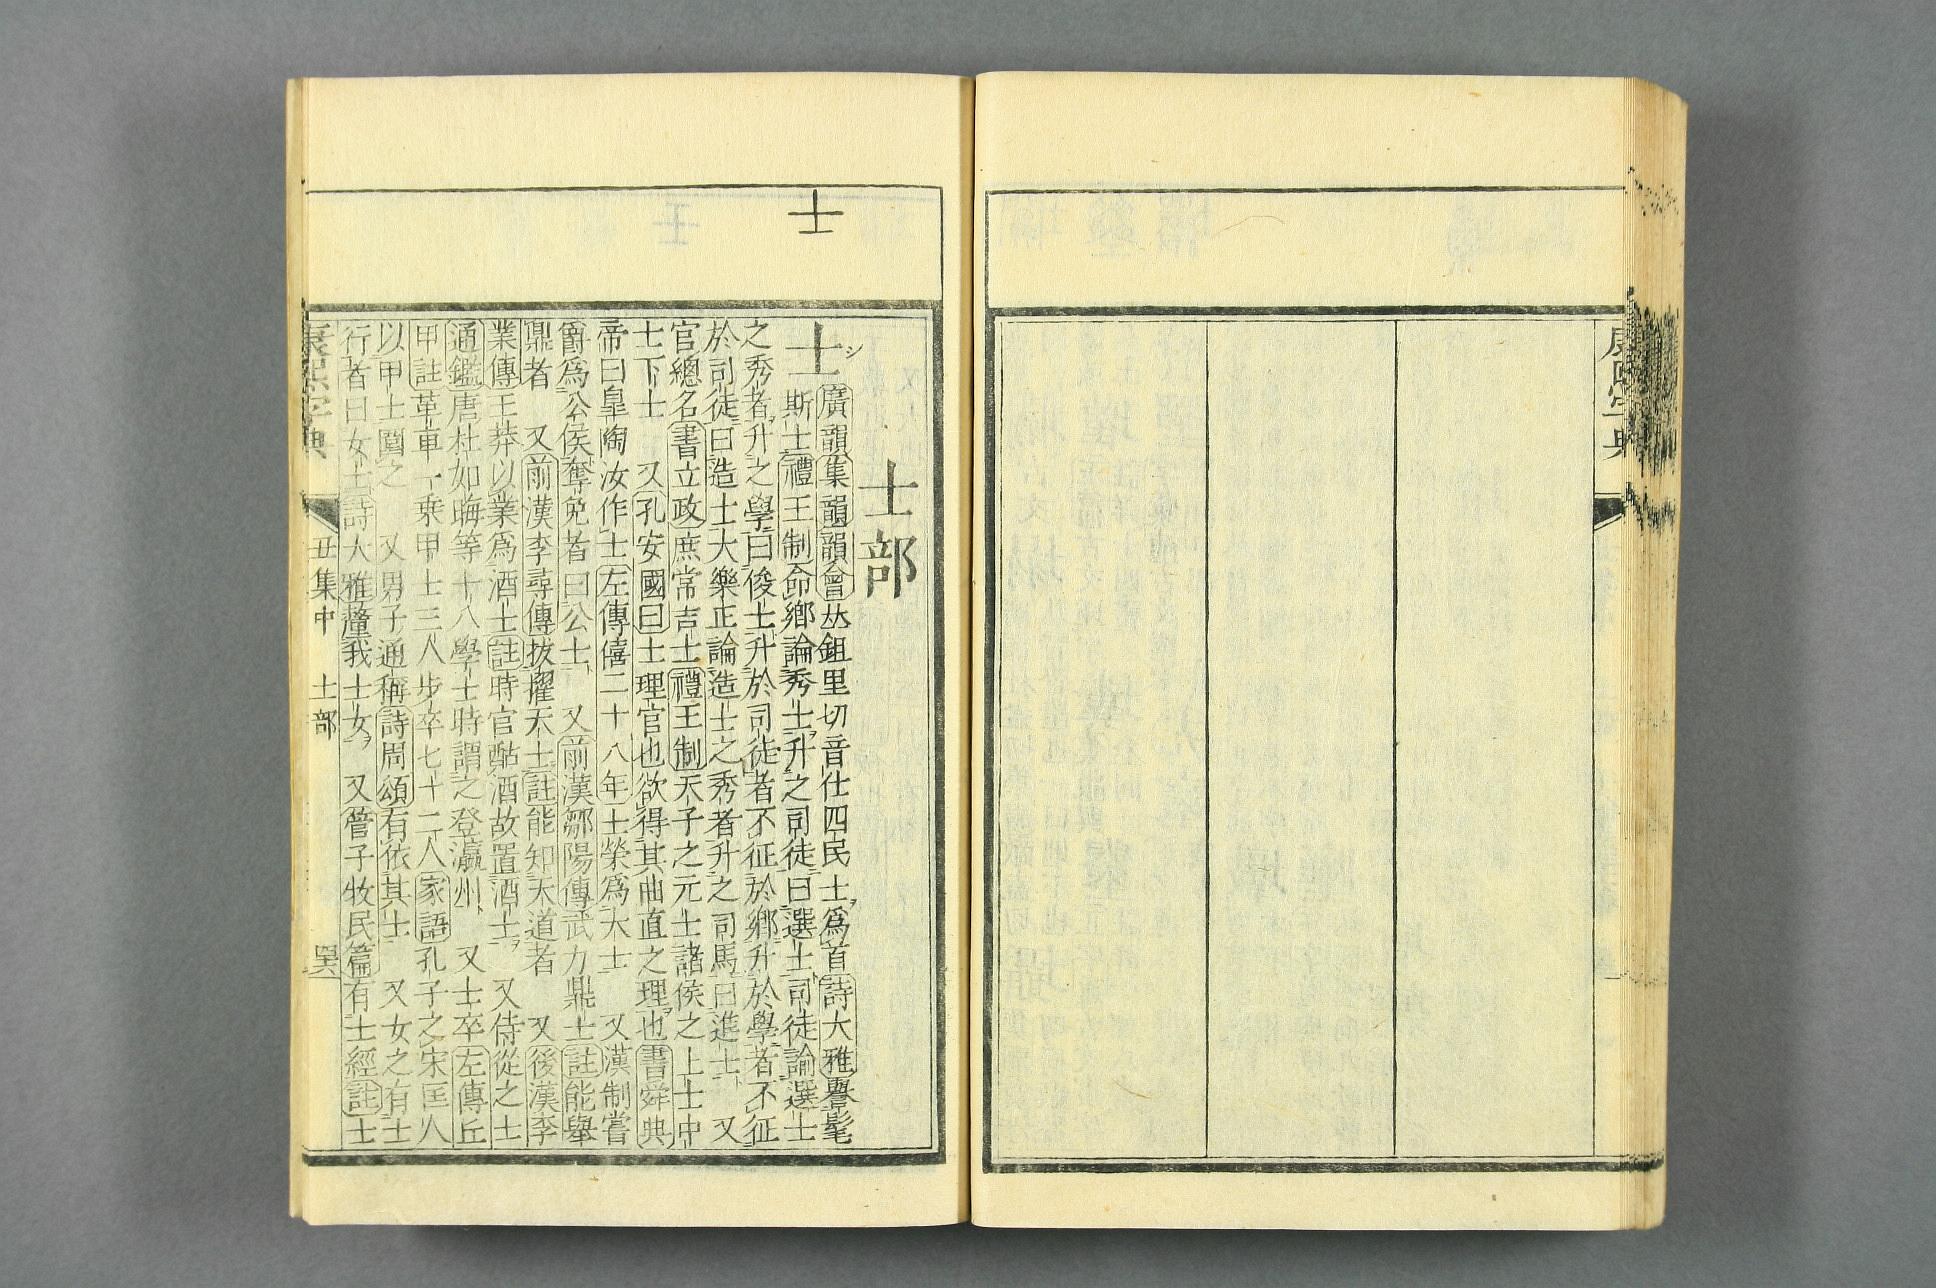 士
士部
士シ
廣韻集韻韻會𠀤鉏里切音仕四民士爲首詩大雅譽髦
斯士禮王制命鄉論秀士升之司徒曰選士司徒論選士
之秀者升之學曰俊士升於司徒者不征於鄉升於學者不征
於司徒曰造士大樂正論造士之秀者升之司馬曰進士 又
官總名書立政庶常吉士禮王制天子之元士諸侯之上士中
士下士 又孔安國曰士理官也欲得其曲直之理也書舜典
帝曰皐陶汝作士左傳僖二十八年士榮爲大士 又漢制嘗
爵爲公侯奪免者曰公士 又前漢鄒陽傳武力鼎士註能舉
鼎者 又前漢李尋傳拔擢天士註能知天道者 又後漢李
業傳王莽以業爲酒士註時官酤酒故置酒士 又侍從之士
通鑑唐杜如晦等十八學士時謂之登瀛州 又士卒左傳丘
甲註革車一乗甲士三人步卒七十二人家語孔子之宋匡人
以甲士圍之 又男子通稱詩周頌有依其士 又女之有士
行者曰女士詩大雅釐我士女 又管子牧民篇有士經註士
康熙字典 丑集中 士部
康熙字典